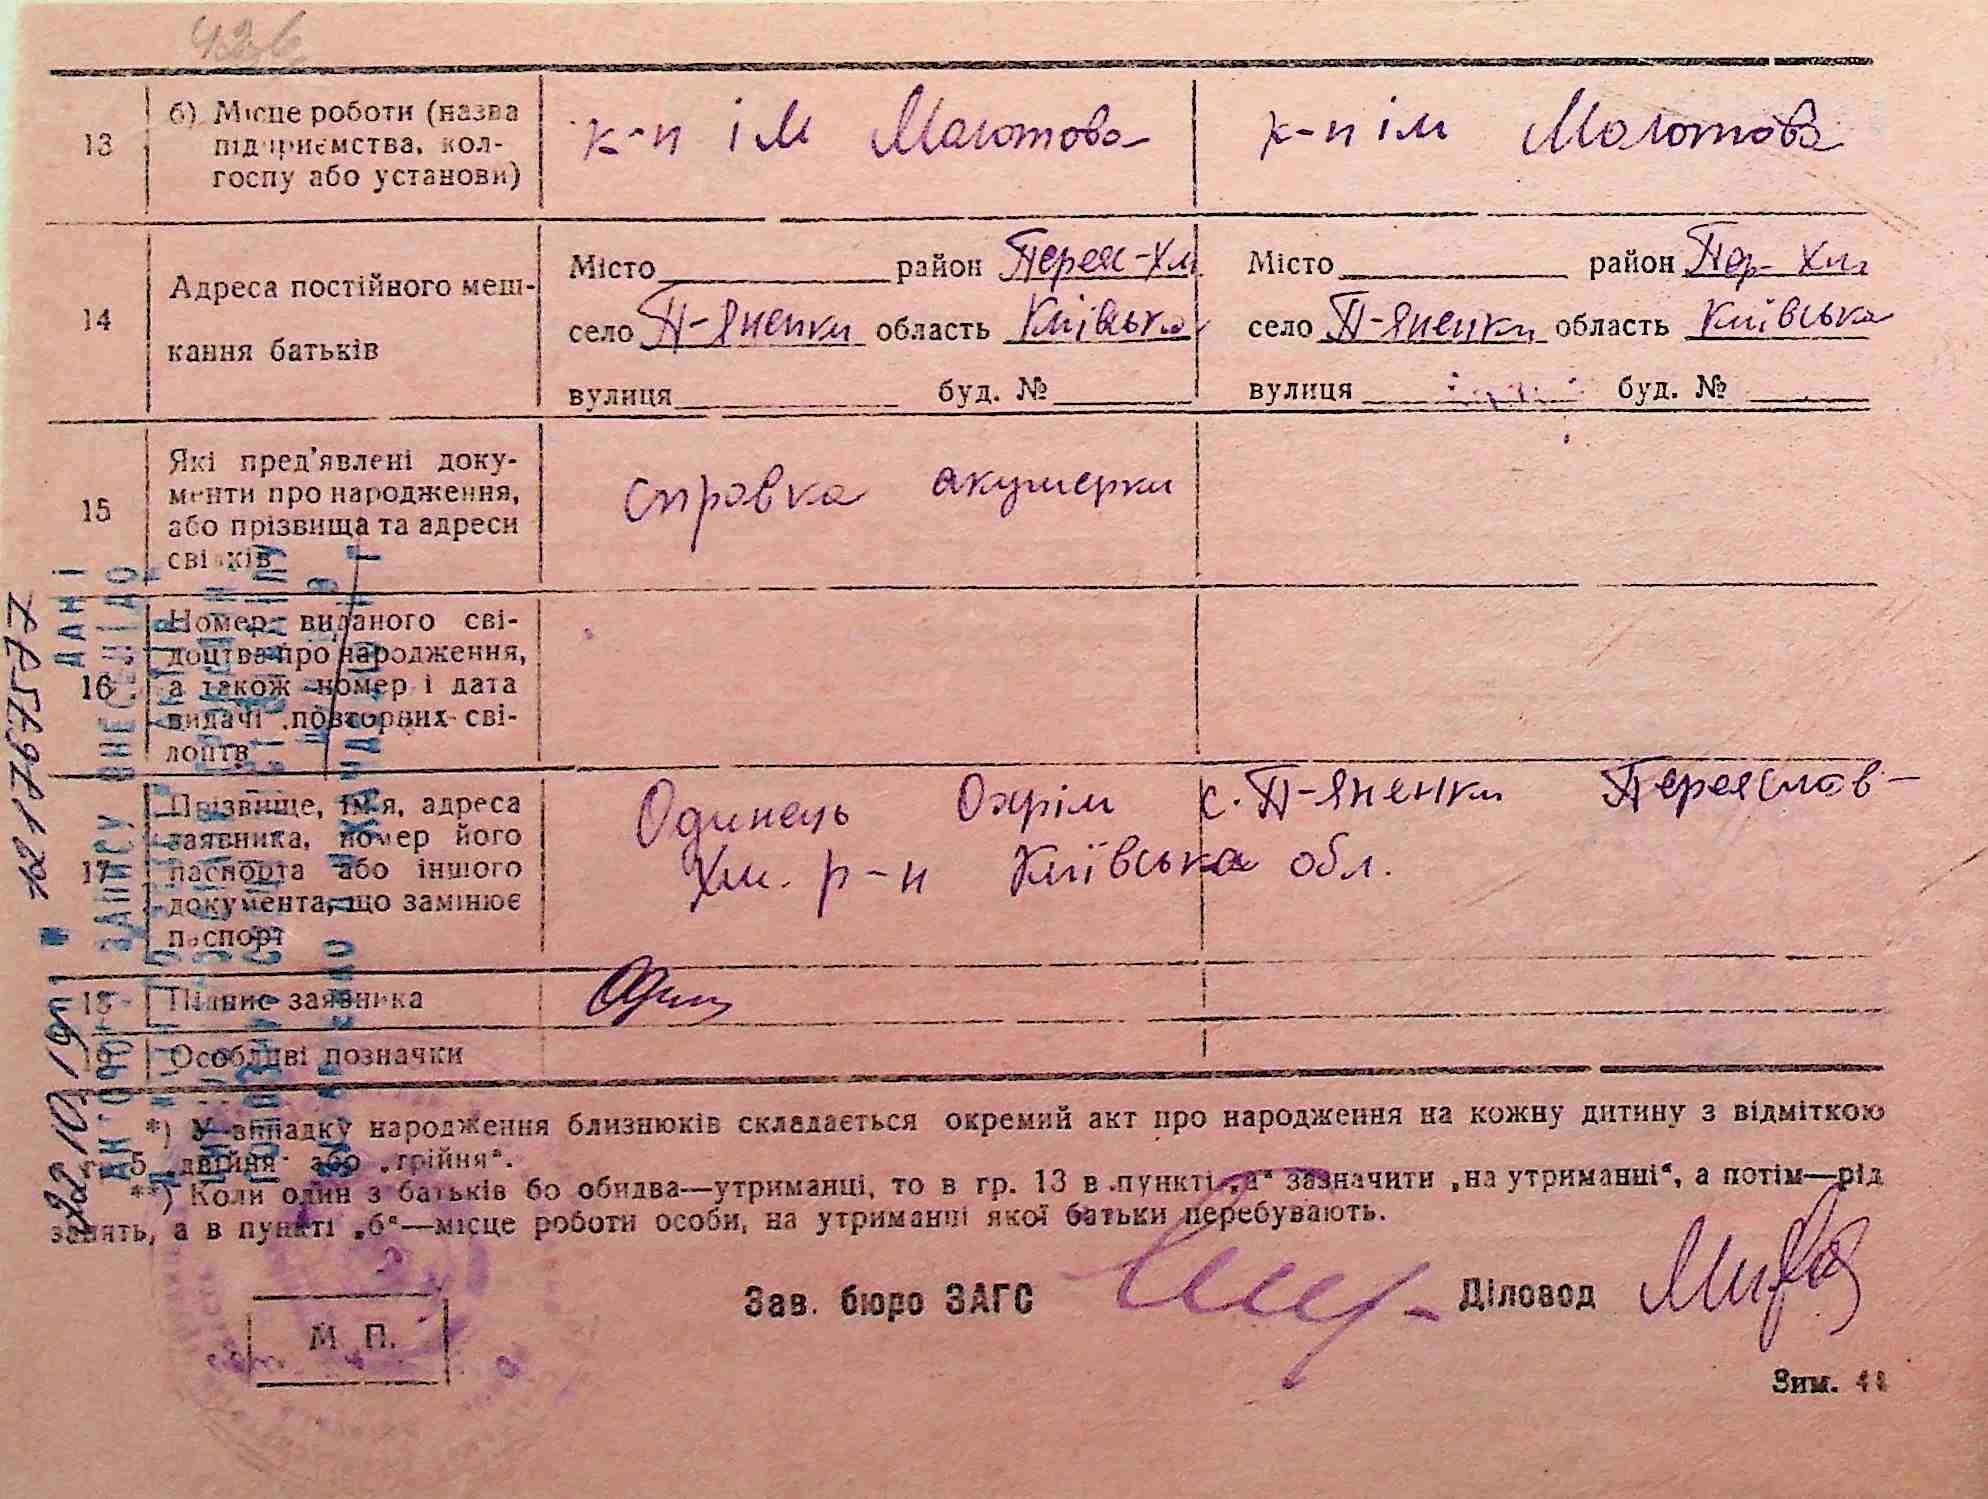 426
13
б) Місце роботи (назва
підприємства, кол-
госпу або установи)
к-п ім Молотова
к-п ім Молотова
14
Адреса постійного меш-
кання батьків
Місто район Переяс-Хм
село П-Яненки область Київська
вулиця буд. №
Місто район Пер-Хм
село П-Яненки область Київська
вулиця буд. №
15
Які пред'явлені доку-
менти про народження,
або прізвища та адреси
свідків
справка акушерки
16
Номер виданого сві-
доцтва про народження,
а також номер і дата
видачі повторних сві-
доцтв
17
Прізвище, ім'я, адреса
заявника, номер його
паспорта або іншого
документа, що замінює
паспорт
Одинець Охрім с. П-Яненки Переяслав-
Хм. р-н Київська обл.
18
Підпис заявника
19
Особливі позначки
*) У випадку народження близнюків складається окремий акт про народження на кожну дитину з відміткою
гр. 5 „двійня" або „трійня".
**) Коли один з батьків бо обидва—утриманці, то в гр. 13 в пункті „а" зазначити „на утриманні", а потім—рід
занять, а в пункті „б"—місце роботи особи, на утриманні якої батьки перебувають.
Зав. бюро ЗАГС
Діловод
М П.
Зим.
ДАНІ
АКТОВОГО ЗАПИСУ ВНЕСЕНІ ДО